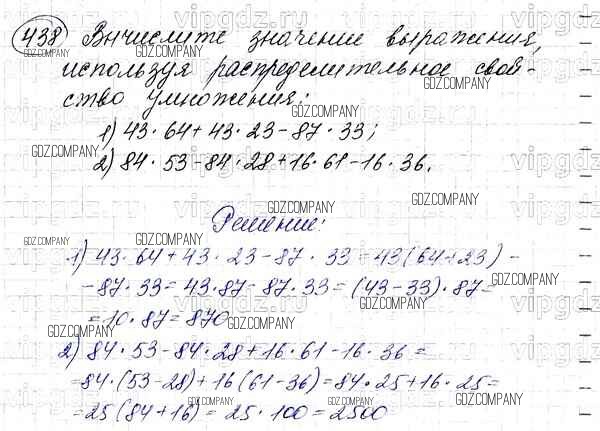 438 Вычислите значение выражения,
используя распределительное свой-
ство умножения:
1) 43·64+43·23-87·33;
2) 84·53-84·28+16·61-16·36.
Решение:
1) 43·64+43·23-87·33=43(64+23)-
-87·33=43·87-87·33=(43-33)·87=
=10·87=870
2) 84·53-84·28+16·61-16·36=
=84·(53-28)+16(61-36)=84·25+16·25=
=25(84+16)=25·100=2500